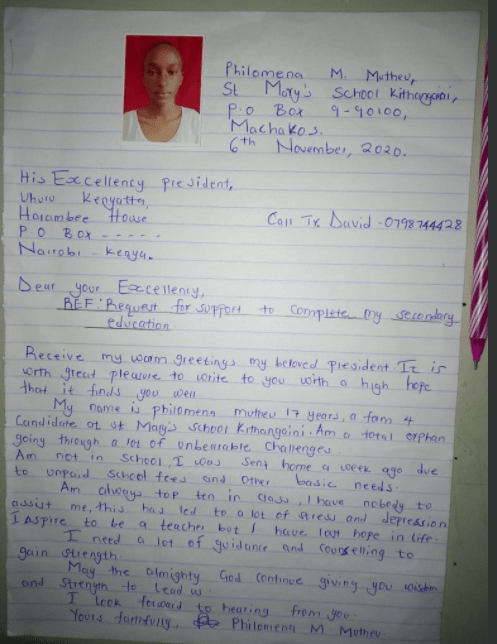 Philomena M. Mutheu,
St Mary's School Kithangaini,
P.O Box 9-90100,
Machakos.
6th November, 2020.
His Excellency president,
Uhuru Kenyatta,
Harambee House
P O Box - - - - -
Nairobi - Kenya.
Call Tr David -0798744428
Dear your Excellency,
REF: Request for support to complete my secondary
education
Receive my warm greetings my beloved president. It is
with great pleasure to write to you with a high hope
that it finds you well
My name is philomena mutheu 17 years, a form 4
Candidate at st Mary's School Kithangaini. Am a total orphan
going through a lot of unbearable challenges.
Am not in School, I was sent home a week ago due
to unpaid school fees and other basic needs.
Am always top ten in class, I have nobody to
assist me, this has led to a lot of stress and depression
I Aspire to be a teacher but I have lost hope in life.
I need a lot of guidance and counselling to
gain strength.
May the almighty God continue giving you wisdom
and strength to lead us.
I look forward to hearing from you.
Yours faithfully, Philomena M Mutheu